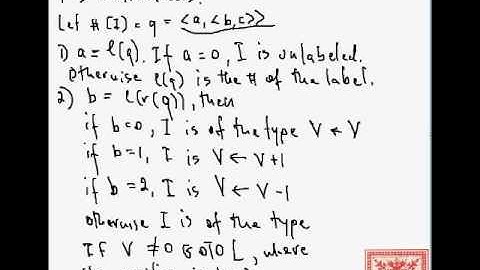 Let #(I) = q = <a, <b, c>>
1) a = l(q). If a = 0, I is unlabeled.
Otherwise l(q) is the # of the label.
2) b = l(r(q)), then
if b=0, I is of the type V ← V
if b=1, I is V ← V+1
if b=2, I is V ← V-1
otherwise I is of the type
IF V ≠ 0 GOTO L, where